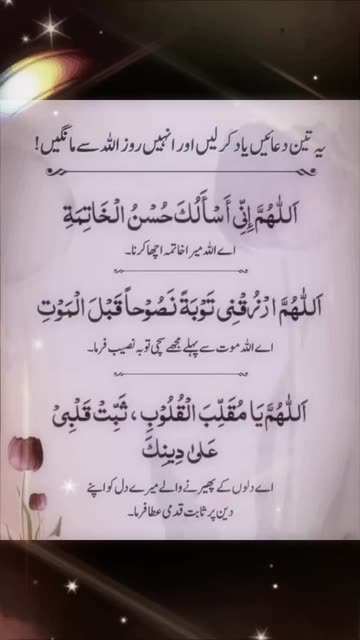 یہ تین دعائیں یاد کر لیں اور انہیں روز اللہ سے مانگیں!
اَللّٰهُمَّ إِنِّي أَسْأَلُكَ حُسْنَ الْخَاتِمَةِ
اے اللہ میرا خاتمہ اچھا کرنا۔
اَللّٰهُمَّ ارْزُقْنِي تَوْبَةً نَصُوْحاً قَبْلَ الْمَوْتِ
اے اللہ موت سے پہلے مجھے سچی توبہ نصیب فرما۔
اَللّٰهُمَّ يَا مُقَلِّبَ الْقُلُوْبِ، ثَبِّتْ قَلْبِيْ
عَلىٰ دِينِكَ
اے دلوں کے پھیرنے والے میرے دل کو اپنے
دین پر ثابت قدمی عطا فرما۔